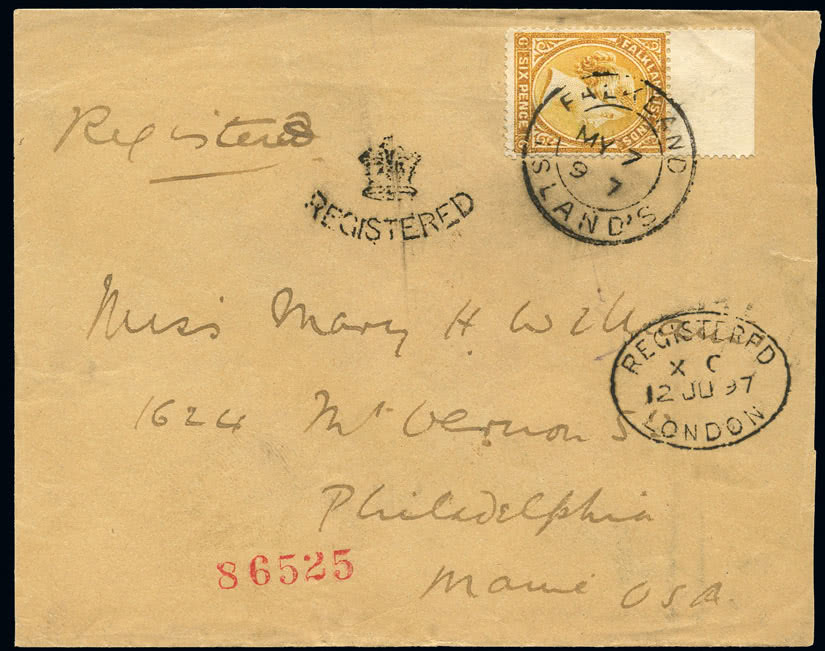 FALKLAND ISLANDS
SIX PENCE
FALKLAND
MY 7
9 7
ISLAND'S
Registered
REGISTERED
Miss Mary H.
REGISTERED
X C
12 JU 97
LONDON
1624 Mt Vernon
Philadelphia
86525
USA